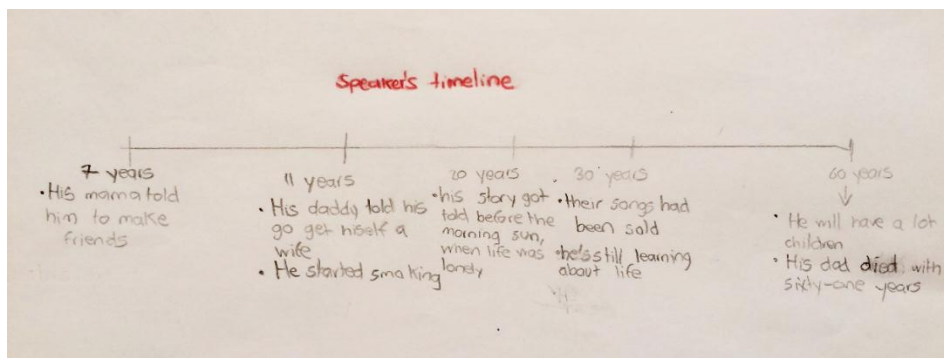 Speaker's timeline
7 years
• His mama told
him to make
friends
11 years
• His daddy told his
go get hiself a
wife
• He started smoking
20 years
• his story got
told before the
morning sun,
when life was
londy
30 years
• their songs had
been sold
• he's still learning
about life
60 years
• He will have a lot
children
• His dad died with
sixty-one years